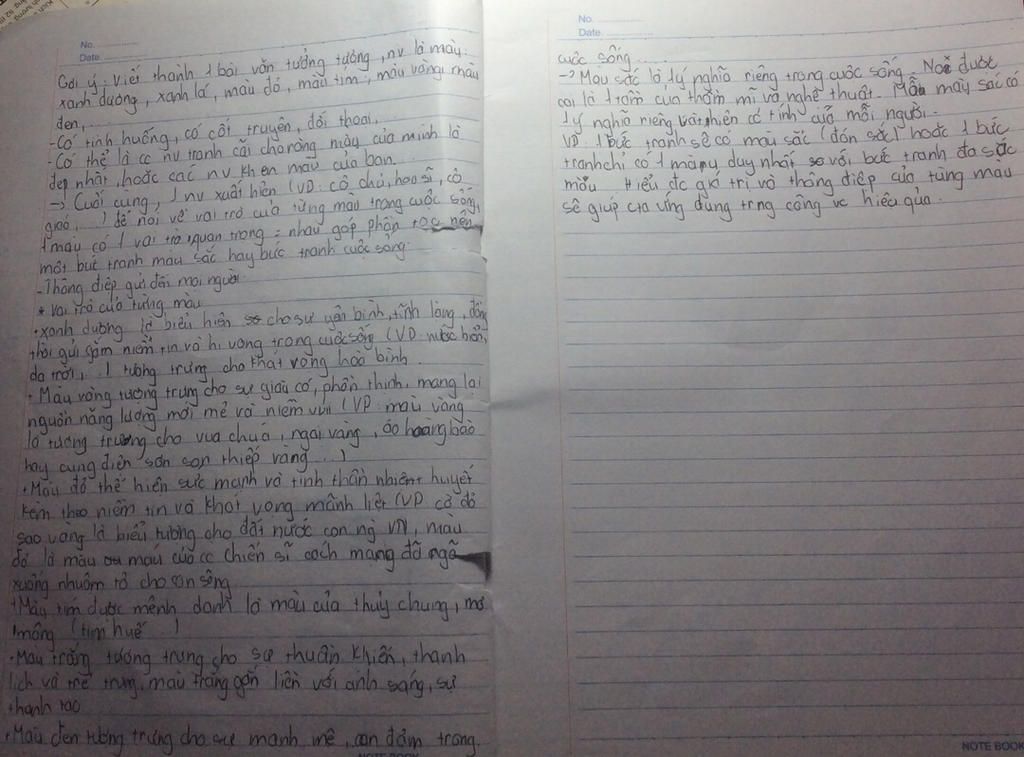 No.
Date
Gợi ý: Viết thành 1 bài văn tưởng tượng, nv là màu
xanh dương, xanh lá, màu đỏ, màu tím, màu vàng, màu
đen,
- Có tình huống, có cốt truyện, đối thoại.
- Có thể là cc nv tranh cãi cho rằng màu của mình là
đẹp nhất, hoặc các nv khen màu của bạn.
→ Cuối cùng, 1 nv xuất hiện (VD: cô chủ, họa sĩ, cô
giáo, ...) để nói về vai trò của từng màu trong cuộc sống,
1 màu có 1 vai trò quan trọng = nhau góp phần tạo nên
một bức tranh màu sắc hay bức tranh cuộc sống.
- Thông điệp gửi đến mọi người
* Vai trò của từng màu
• Xanh dương là biểu hiện cho sự yên bình, tĩnh lặng, đồng
thời gửi gắm niềm tin và hi vọng trong cuộc sống (VD: nước biển,
da trời, ...) tượng trưng cho khát vọng hoà bình.
• Màu vàng tượng trưng cho sự giàu có, phồn thịnh, mang lại
nguồn năng lượng mới mẻ và niềm vui (VD: màu vàng
là tượng trương cho vua chúa, ngai vàng, áo hoàng bào
hay cung điện sơn son thiếp vàng ...)
• Màu đỏ thể hiện sức mạnh và tinh thần nhiệm huyết
kèm theo niềm tin và khát vọng mãnh liệt (VD: cờ đỏ
sao vàng là biểu tượng cho đất nước con ng VN, màu
đỏ là màu máu của cc chiến sĩ cách mạng đã ngã
xuống nhuộm đỏ cho
• Màu tím được mệnh danh là màu của thuỷ chung, mơ
mộng (tím huế ...)
• Màu trắng tượng trưng cho sự thuần khiết, thanh
lịch và trẻ trung, màu trắng gắn liền với ánh sáng, sự
thanh cao
• Màu đen tượng trưng cho sự mạnh mẽ, can đảm trong
NOTE BOOK
No.
Date
cuộc sống ...
→ Màu sắc là 1 ý nghĩa riêng trong cuộc sống. Nó được
coi là 1 của thẩm mĩ và nghệ thuật. Mỗi màu sắc có
1 ý nghĩa riêng cá tính của mỗi người.
VD: 1 bức tranh sẽ có màu sắc (đơn sắc) hoặc 1 bức
tranh chỉ có 1 màu duy nhất so với bức tranh đa sắc
màu. Hiểu đc giá trị và thông điệp của từng màu
sẽ giúp cta ứng dụng trng công vc hiệu quả.
NOTE BOOK